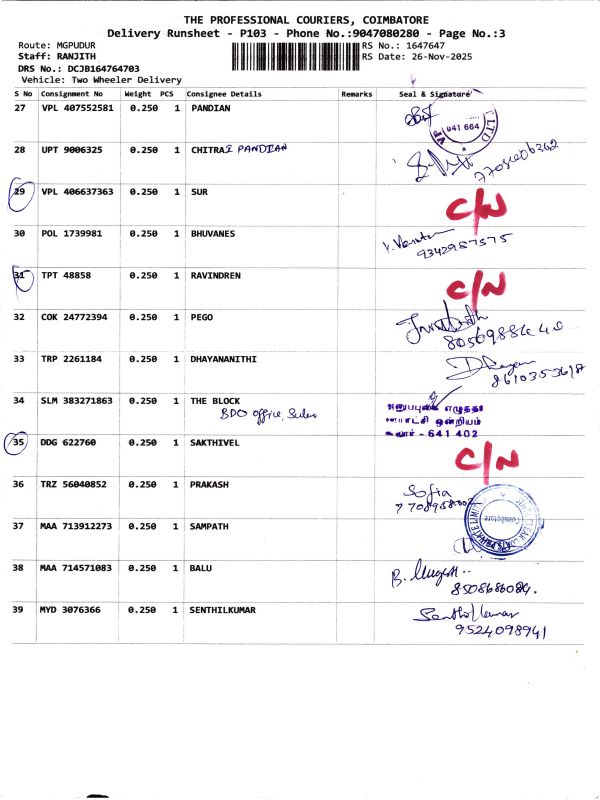 THE PROFESSIONAL COURIERS, COIMBATORE
Delivery Runsheet - P103 - Phone No.:9047080280 - Page No.:3
Route: MGPUDUR RS No.: 1647647
Staff: RANJITH RS Date: 26-Nov-2025
DRS No.: DCJB164764703
Vehicle: Two Wheeler Delivery
S No Consignment No Weight PCS Consignee Details Remarks Seal & Signature
27 VPL 407552581 0.250 1 PANDIAN
041 664
LTD
28 UPT 9006325 0.250 1 CHITRAI PANDIAN
29 VPL 406637363 0.250 1 SUR C/N
30 POL 1739981 0.250 1 BHUVANES
9342987575
31 TPT 48858 0.250 1 RAVINDREN C/N
32 COK 24772394 0.250 1 PEGO
33 TRP 2261184 0.250 1 DHAYANANITHI
8610353618
34 SLM 383271863 0.250 1 THE BLOCK
BDO office
ஒன்றியம்
- 641 402
35 DDG 622760 0.250 1 SAKTHIVEL C/N
36 TRZ 56040852 0.250 1 PRAKASH Sofia
Coimbatore
37 MAA 713912273 0.250 1 SAMPATH
38 MAA 714571083 0.250 1 BALU
8508686084.
39 MYD 3076366 0.250 1 SENTHILKUMAR Senthil Kumar
9524098941